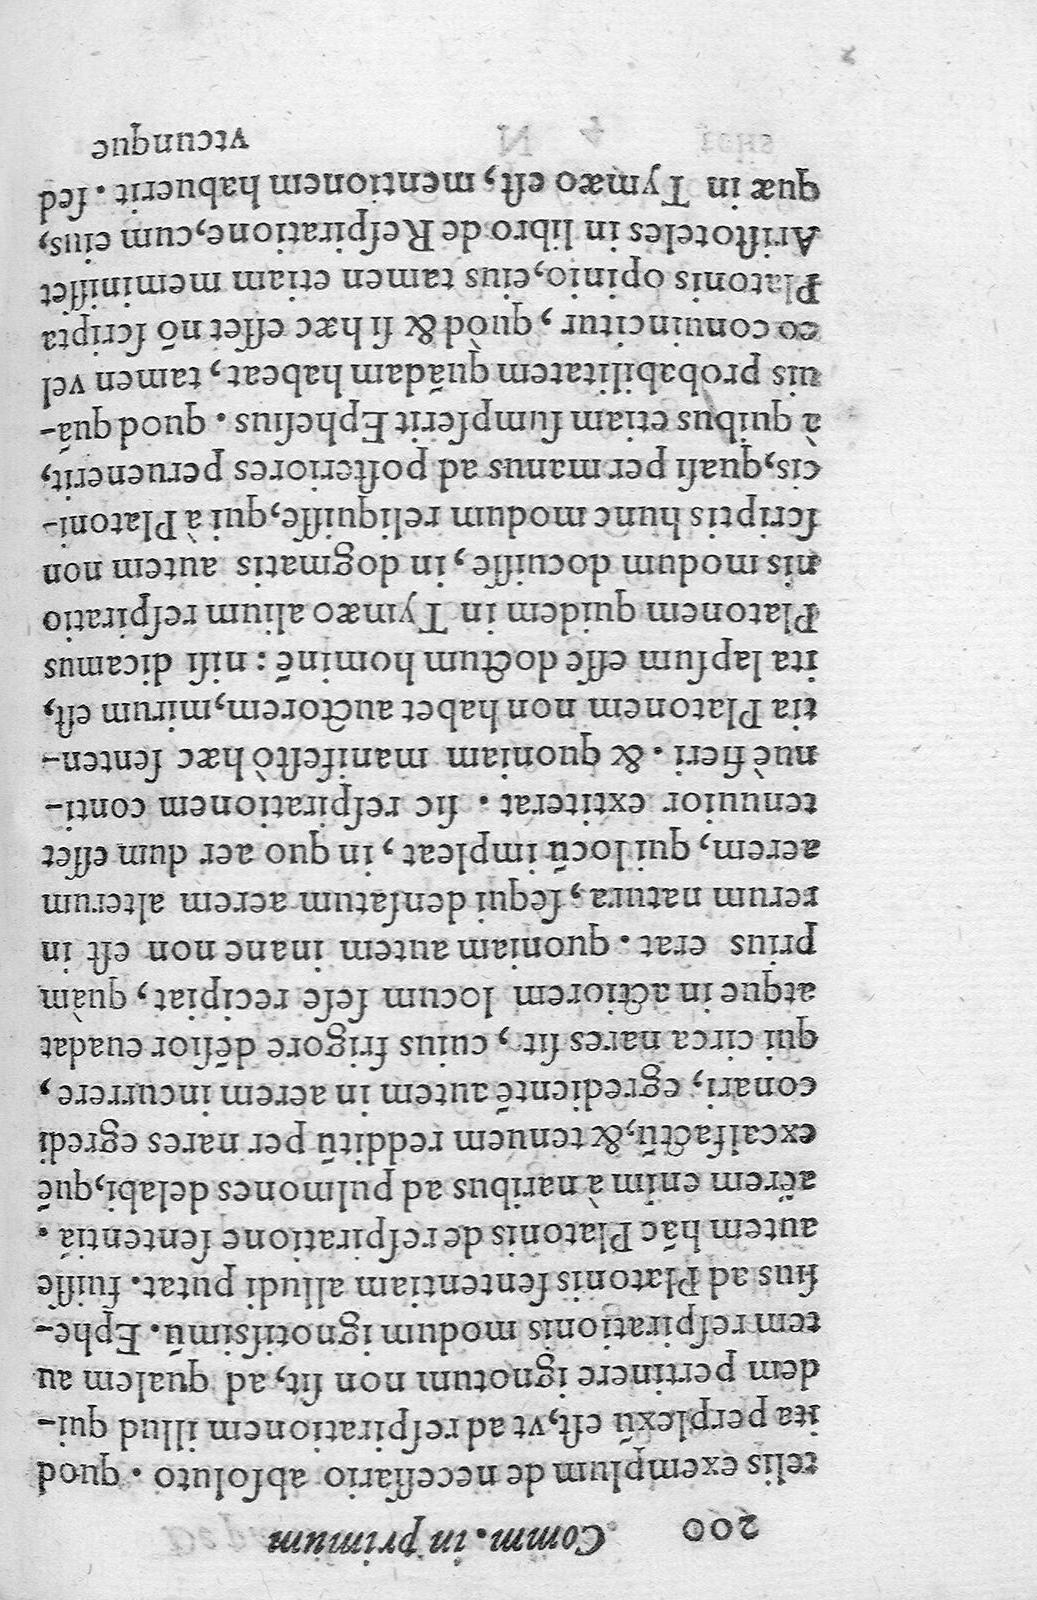 200 Comm. in primum
telis exemplum de necessario absoluto. quod
ita perplexũ est, vt ad respirationem illud qui-
dem pertinere ignotum non sit, ad qualem au
tem respirationis modum ignotissimũ. Ephe-
sius ad Platonis sententiam alludi putat. fuisse
autem hãc Platonis de respiratione sententiã.
aërem enim à naribus ad pulmones delabi, quẽ
excalfactũ, & tenuem redditũ per nares egredi
conari; egredientẽ autem in aerem incurrere,
qui circa nares sit, cuius frigore dẽsior euadat
atque in actiorem locum sese recipiat, quàm
prius erat. quoniam autem inane non est in
rerum natura, sequi densatum aerem alterum
aerem, qui locũ impleat, in quo aer dum esset
tenuuior extiterat. sic respirationem conti-
nuè fieri. & quoniam manifestò hæc senten-
tia Platonem non habet auctorem, mirum est,
ita lapsum esse doctum hominẽ: nisi dicamus
Platonem quidem in Tymæo alium respiratio
nis modum docuisse, in dogmatis autem non
scriptis hunc modum reliquisse, qui à Platoni-
cis, quasi per manus ad posteriores peruenerit,
à quibus etiam sumpserit Ephesius. quod quã-
uis probabilitatem quãdam habeat, tamen vel
eo conuincitur, quòd & si hæc esset nõ scripta
Platonis opinio, eius tamen etiam meminisset
Aristoteles in libro de Respiratione, cum, eius,
quæ in Tymæo est, mentionem habuerit. sed
vtcunque